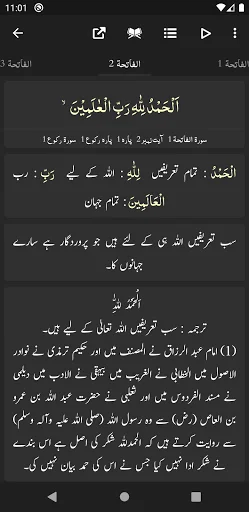 11:01
الفاتحة 1 الفاتحة 2 الفاتحة 3
اَلْحَمْدُ لِلّٰهِ رَبِّ الْعٰلَمِیْنَ ۙ
سورۃ الفاتحة 1 آیت نمبر 2 پارہ 1 پارہ رکوع 1 سورۃ رکوع 1
الْحَمْدُ : تمام تعریفیں لِلّٰہِ : اللہ کے لیے رَبِّ : رب
الْعَالَمِیْنَ : تمام جہان
سب تعریفیں اللہ ہی کے لئے ہیں جو پروردگار ہے سارے
جہانوں کا۔
اَلْحَمْدُ لِلّٰهِ
ترجمہ : سب تعریفیں اللہ تعالیٰ کے لیے ہیں۔
(1) امام عبد الرزاق نے المصنف میں اور حکیم ترمذی نے نوادر
الاصول میں الخطابی نے الغریب میں بیہقی نے الادب میں دیلمی
نے مسند الفردوس میں اور ثعلبی نے حضرت عبد اللہ بن عمرو
بن العاص (رض) سے وہ رسول اللہ (صلی اللہ علیہ وآلہ وسلم)
سے روایت کرتے ہیں کہ الحمدللہ شکر کی اصل ہے اس بندے
نے شکر ادا نہیں کیا جس نے اس کی حمد بیان نہیں کی۔